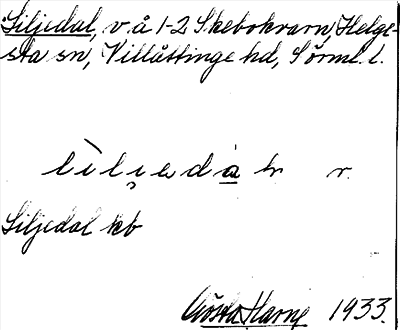 Liljedal, v.å 1-2 Skebokvarn, Helge-
sta sn, Villåttinge hd, Sörml. l.
lìli̯edạ̄l v.
Liljedal kb
Gösta Harne 1933.